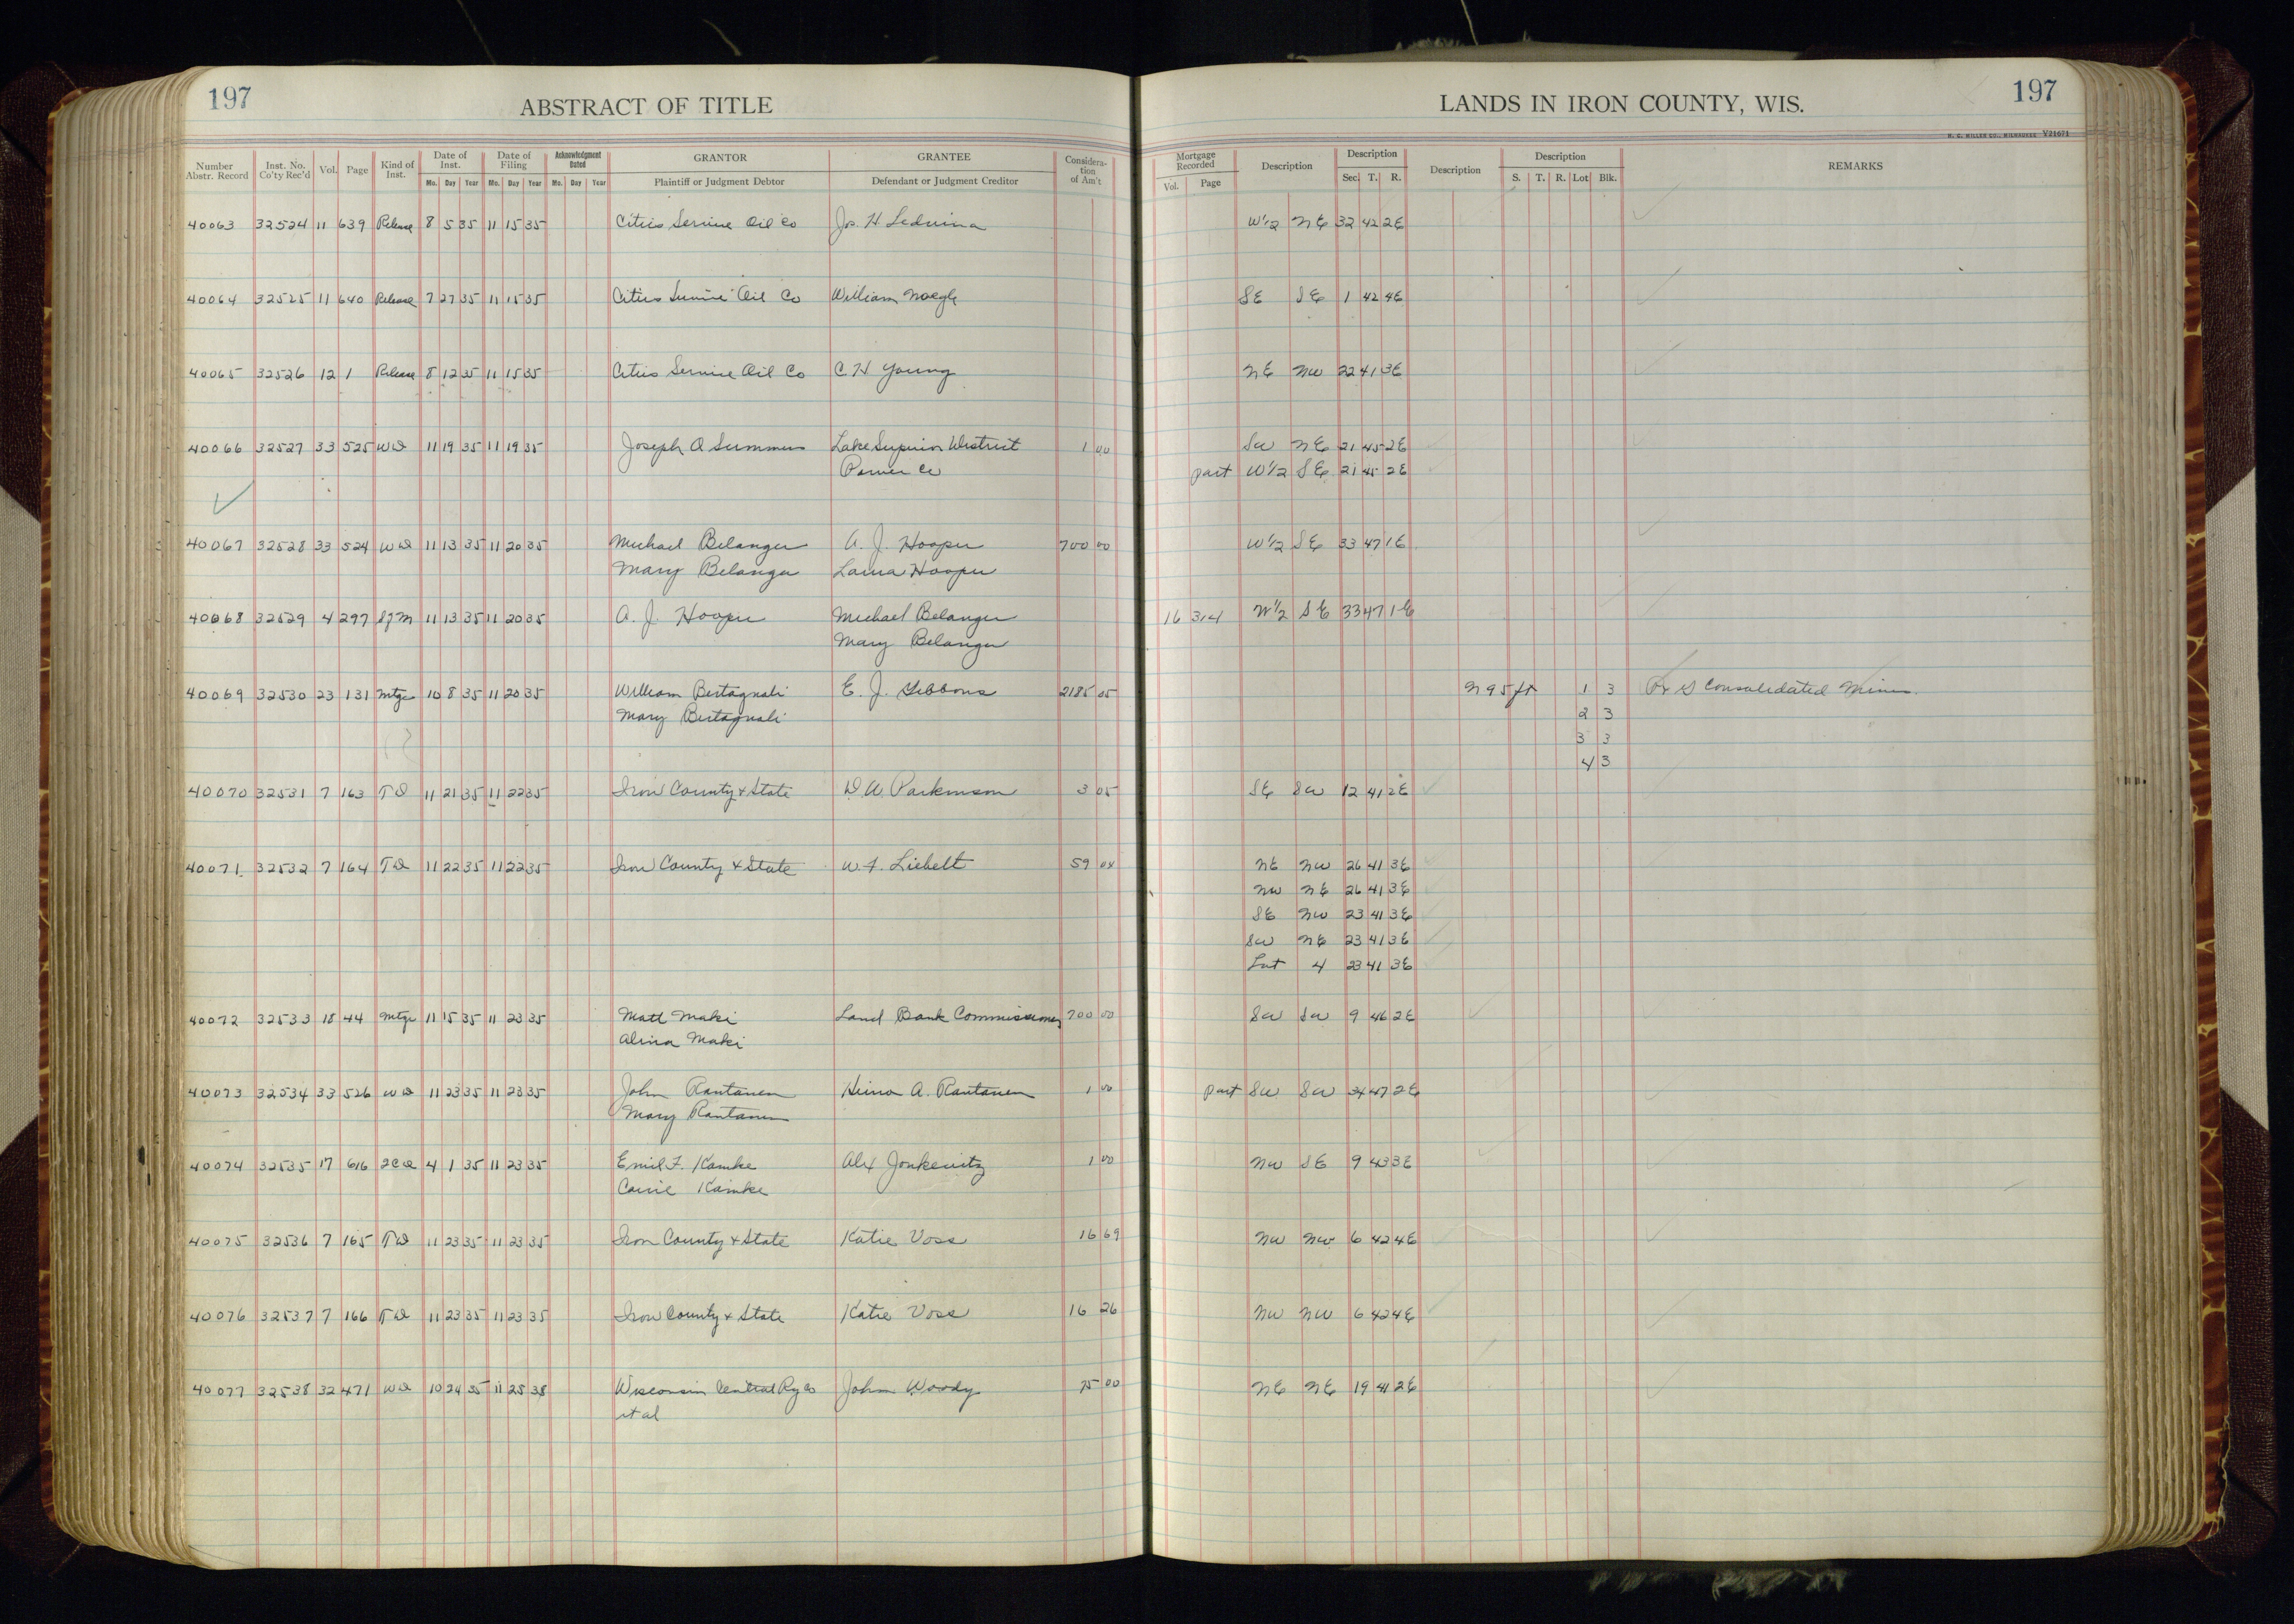 197 ABSTRACT OF TITLE LANDS IN IRON COUNTY, WIS. 197
H. C. MILLER CO., MILWAUKEE V21671
Number Abstr. Record Inst. No. Co'ty Rec'd Vol. Page Kind of Inst. Date of Inst. Mo. Day Year Date of Filing Mo. Day Year Acknowledgment Dated Mo. Day Year GRANTOR Plaintiff or Judgment Debtor GRANTEE Defendant or Judgment Creditor Consideration of Am't Mortgage Recorded Vol. Page Description Description Sec. T. R. Description Description S. T. R. Lot Blk. REMARKS
40063 32524 11 639 Release 8 5 35 11 15 35 Cities Service Oil Co Jos. H. Leduina W½ NE 32 42 2E
40064 32525 11 640 Release 7 27 35 11 15 35 Cities Service Oil Co William Naegle SE SE 1 42 4E
40065 32526 12 1 Release 8 12 35 11 15 35 Cities Service Oil Co C H Young NE NW 22 41 3E
40066 32527 33 525 WD 11 19 35 11 19 35 Joseph A Summers Lake Superior District 1 00 SW NE 21 45 2E
Power Co part W½ SE 21 45 2E
40067 32528 33 524 WD 11 13 35 11 20 35 Michael Belanger A. J. Hooper 700 00 W½ SE 33 47 1E
Mary Belanger Hooper
40068 32529 4 297 SfM 11 13 35 11 20 35 A. J. Hooper Michael Belanger 16 314 W½ SE 33 47 1E
Mary Belanger
40069 32530 23 131 Mtge 10 8 35 11 20 35 William Bertagnoli E. J. Gibbons 2185 05 N 95 ft 1 3 Consolidated Mines
Mary Bertagnoli 2 3
3 3
4 3
40070 32531 7 163 TD 11 21 35 11 22 35 Iron County & State D. W. Parkinson 3 05 SE SW 12 41 2E
40071 32532 7 164 TD 11 22 35 11 22 35 Iron County & State W. F. Liebelt 59 04 NE NW 26 41 3E
NW NE 26 41 3E
SE NW 23 41 3E
SW NE 23 41 3E
Lot 4 23 41 3E
40072 32533 18 44 Mtge 11 15 35 11 23 35 Matt Maki Land Bank Commissioner 700 00 SW SW 9 46 2E
Alina Maki
40073 32534 33 526 WD 11 23 35 11 23 35 John Rantanen Heino A. Rantanen 1 00 part SW SW 34 47 2E
Mary Rantanen
40074 32535 17 616 2CD 4 1 35 11 23 35 Emil F. Kamke Alex Jonkevitz 1 00 NW SE 9 43 3E
Carrie Kamke
40075 32536 7 165 TD 11 23 35 11 23 35 Iron County & State Katie Voss 16 69 NW NW 6 42 4E
40076 32537 7 166 TD 11 23 35 11 23 35 Iron County & State Katie Voss 16 26 NW NW 6 42 4E
40077 32538 32 471 WD 10 24 35 11 25 35 Wisconsin Central Ry Co John Woody 75 00 NE NE 19 41 2E
et al